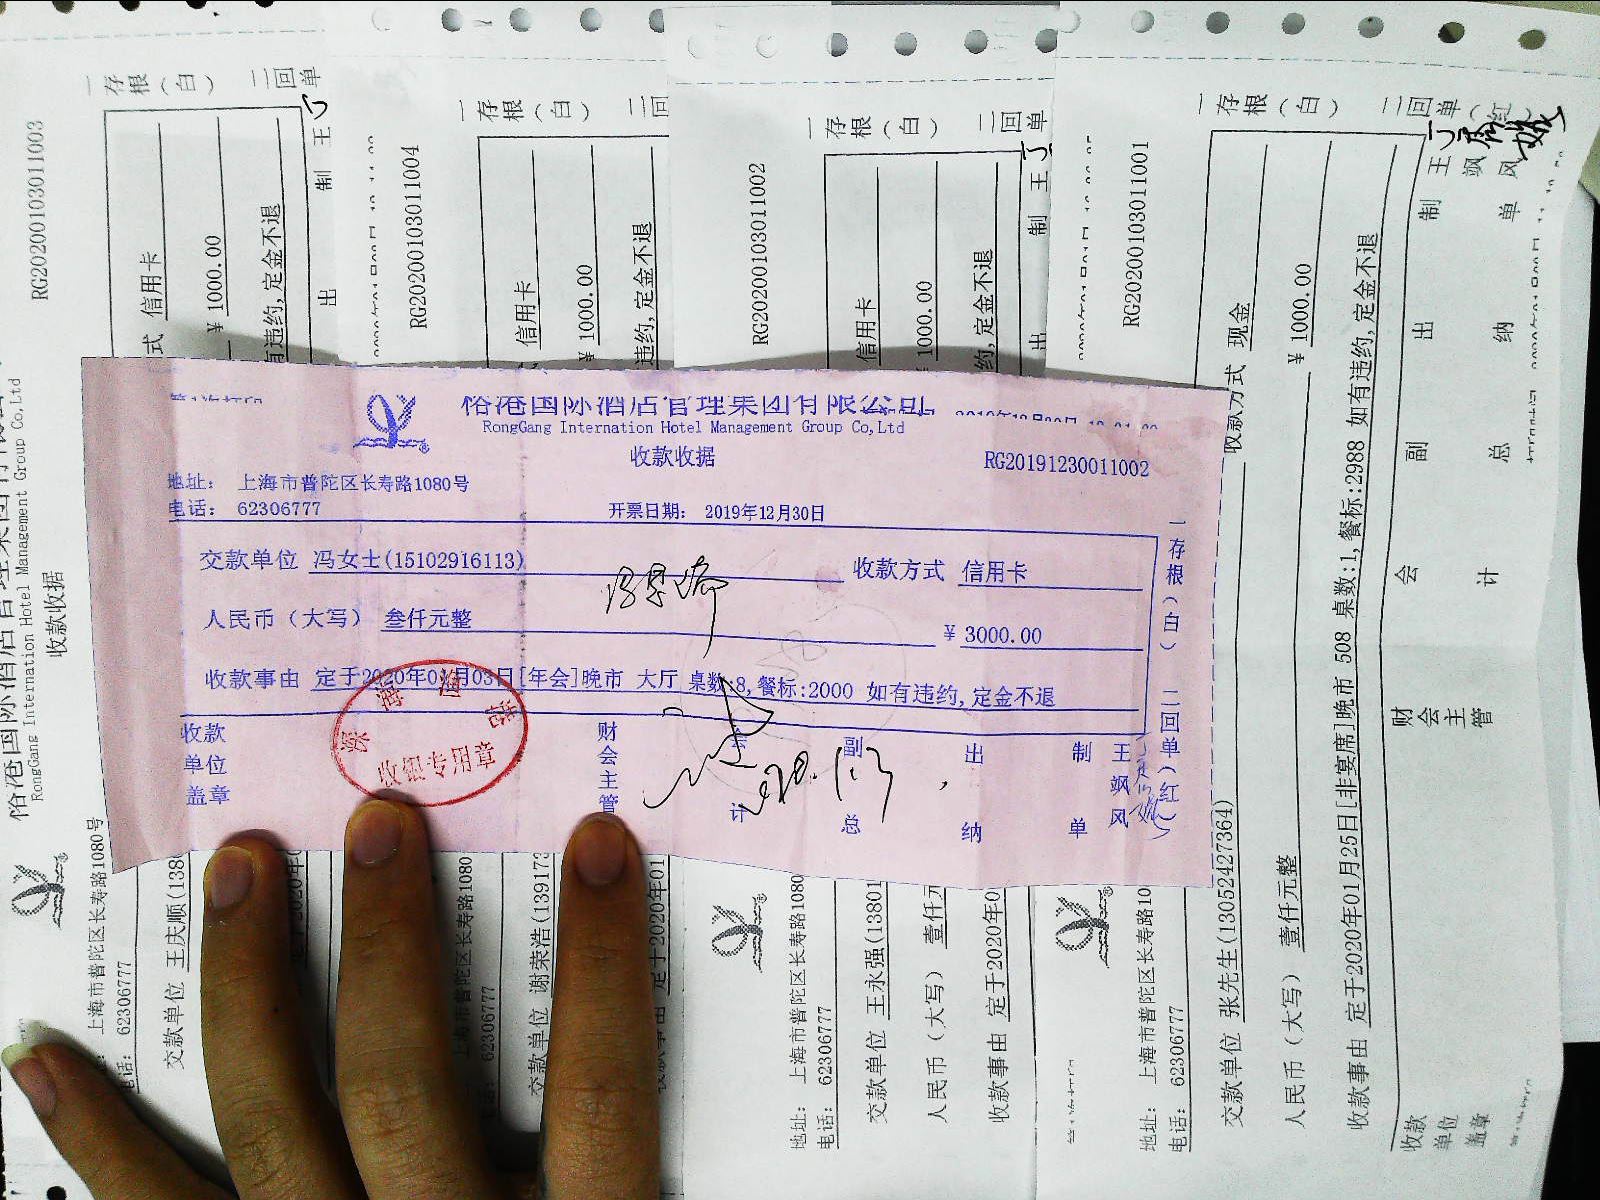 俗港国际酒店管理集团有限公司
RongGang Internation Hotel Management Group Co,Ltd
收款收据
RG20191230011002
地址： 上海市普陀区长寿路1080号
电话： 62306777
开票日期： 2019年12月30日
交款单位 冯女士(15102916113)
收款方式 信用卡
人民币（大写） 叁仟元整
￥ 3000.00
收款事由 定于2020年01月03日[年会]晚市 大厅 桌数:8,餐标:2000 如有违约,定金不退
收款单位盖章
收银专用章
财会主管
会计
副总
出纳
制单
王飒风
一存根（白） 二回单（红）
RG20200103011003
RongGang Internation Hotel Management Group Co,Ltd
收款收据
上海市普陀区长寿路1080号
电话： 62306777
交款单位 王庆顺(138
式 信用卡
￥ 1000.00
有违约,定金不退
一存根（白） 二回单
制 王
出
RG20200103011004
上海市普陀区长寿路1080
62306777
交款单位 谢荣浩(139173
信用卡
￥ 1000.00
违约,定金不退
定于2020年01
一存根（白） 二回
RG20200103011002
地址： 上海市普陀区长寿路1080
电话： 62306777
交款单位 王永强(13801
信用卡
人民币（大写） 壹仟元
1000.00
收款事由 定于2020年0
约,定金不退
一存根（白） 二回单
制 王
出
RG20200103011001
地址： 上海市普陀区长寿路10
电话： 62306777
交款单位 张先生(13052427364)
收款方式 现金
人民币（大写） 壹仟元整
￥ 1000.00
收款事由 定于2020年01月25日[非宴席]晚市 508 桌数:1,餐标:2988 如有违约,定金不退
收款单位盖章
财会主管
会计
副总
出纳
制单
王飒风
一存根（白） 二回单（红